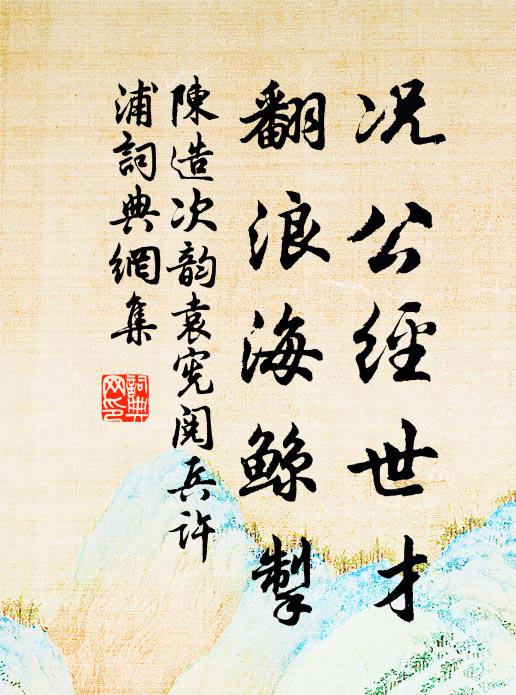 况公經世才
翻浪海鲸掣
陳造次韵袁宪阅兵许
浦詞典網集
詞典
网印